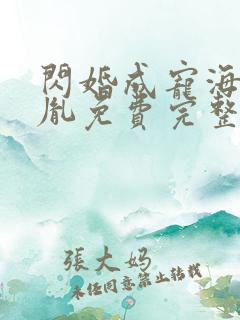 閃婚成寵海
胤免費完整
張大媽
未经同意禁止转载